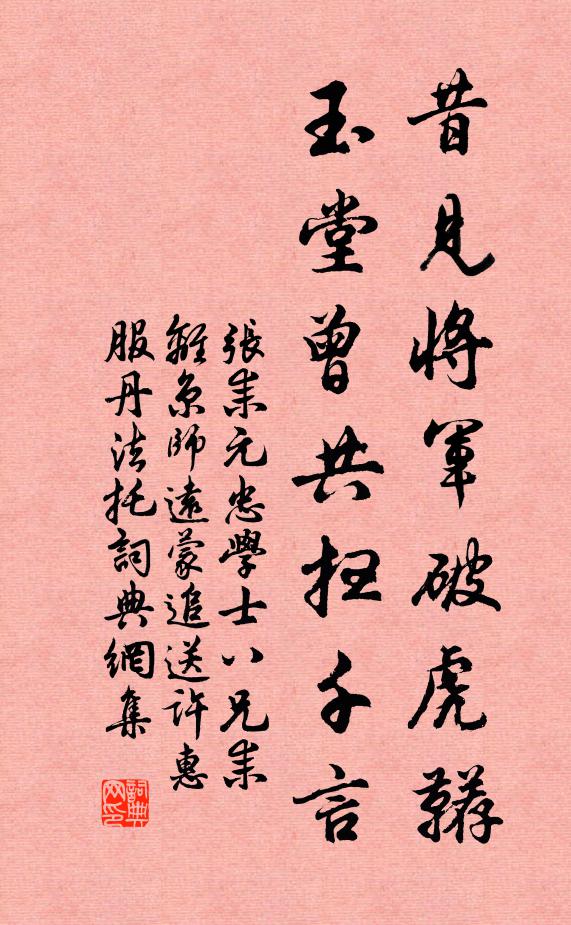 昔見將軍破虎韝
玉堂曾共扫千言
張耒元忠學士八兄耒
離京師遠蒙追送許惠
服丹法托詞典網集
詞典網印